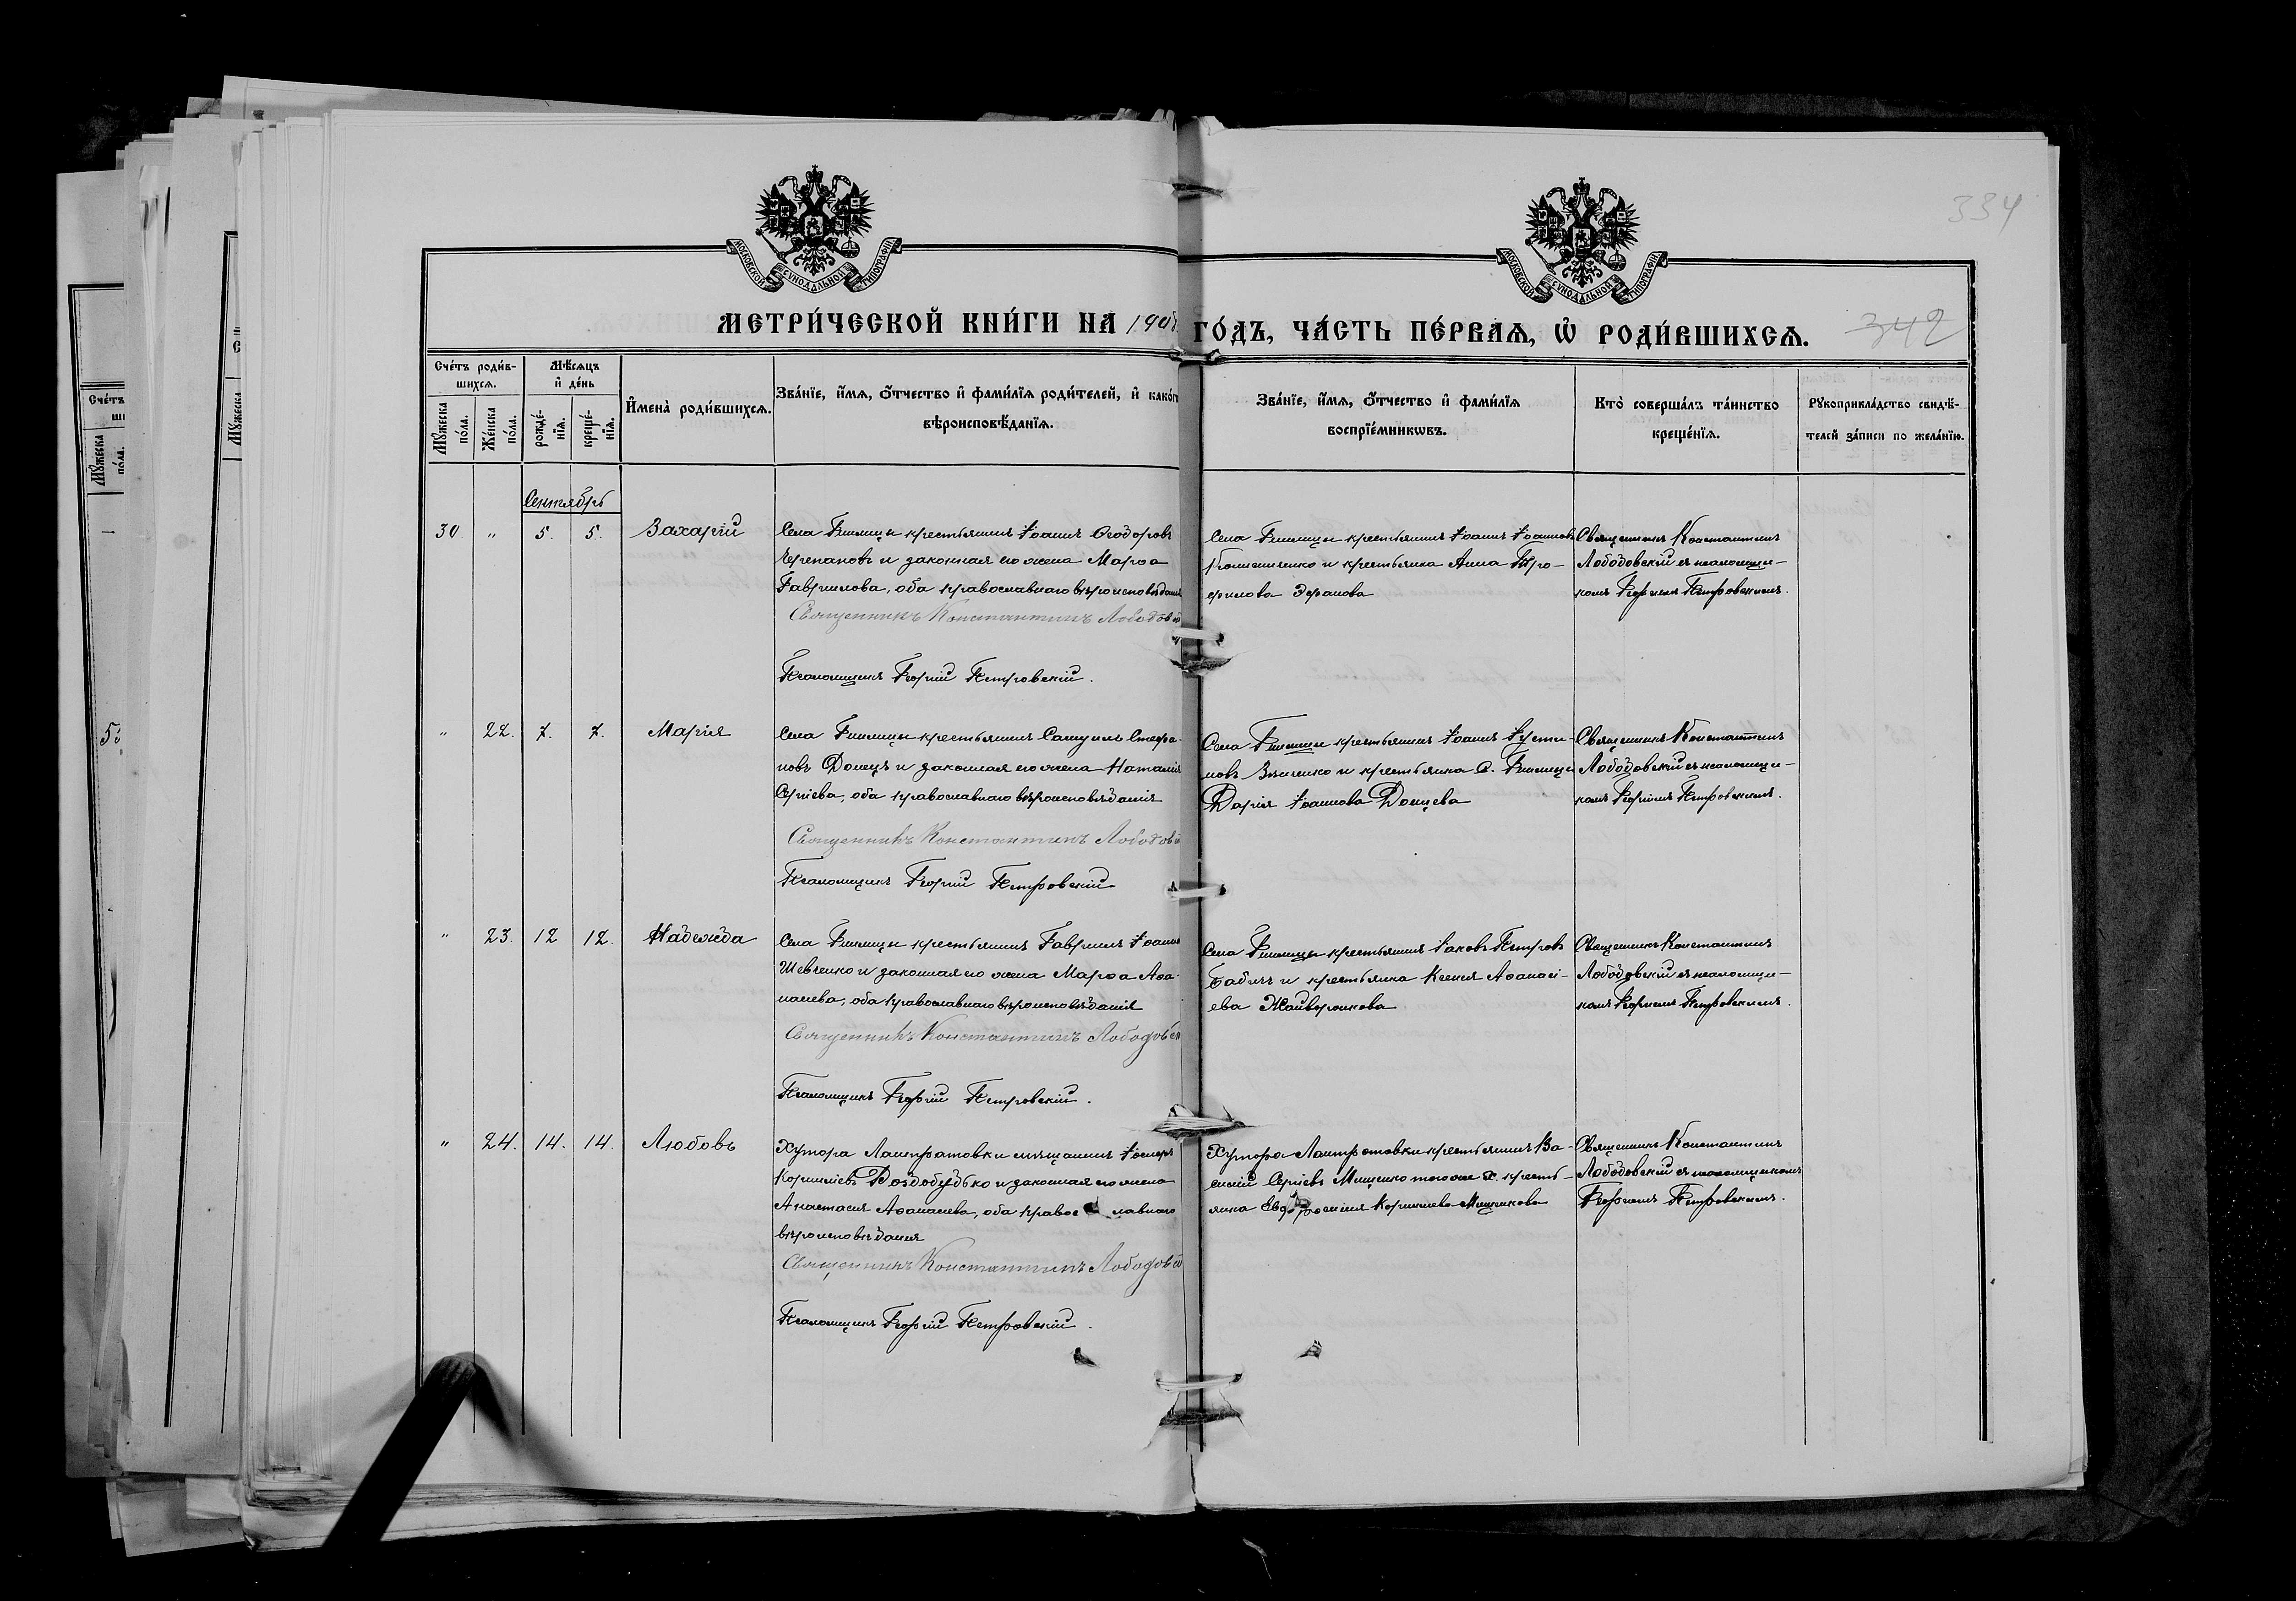 334
МОСКОВСКОЙ СѴНОДАЛЬНОЙ ТИПОГРАФІИ
МОСКОВСКОЙ СѴНОДАЛЬНОЙ ТИПОГРАФІИ
МЕТРИ́ЧЕСКОЙ КНИ́ГИ НА 190 ГО́ДЪ, ЧА́СТЬ ПЕ́РВАѦ, Ѡ҆ РОДИ́ВШИХСѦ.
342
Сче́тъ роди́в-
шихсѧ.
Мѣ́сѧцъ
и҆ де́нь
Мꙋ́жеска по́ла.
Же́нска по́ла.
рожде́-нїѧ.
креще́-нїѧ.
И҆мена̀ роди́вшихсѧ.
Зва́нїе, и҆́мѧ, ѻ҆́тчество и҆ фами́лїѧ роди́телей, и҆ како́гѡ
вѣроисповѣ́данїѧ.
Зва́нїе, и҆́мѧ, ѻ҆́тчество и҆ фами́лїѧ
воспрїе́мникѡвъ.
Кто̀ соверша́лъ та́инство
креще́нїѧ.
Рꙋкоприкла́дство свидѣ́-
телей за́писи по жела́нїю.
Сентябрь
30. " 5. 5. Захарій
Села крестьянинъ Іоаннъ Ѳеодоровъ
Черепановъ и законная его жена Марѳа
Гавриилова, оба православнаго вѣроисповѣданія
Священникъ Константинъ Лободовскій
Псаломщикъ Георгій Петровскій.
Села крестьянинъ Іоаннъ Іоанновъ
и крестьянка Анна Тро-
фимова
Священникъ Константинъ
Лободовскій съ псаломщи-
комъ Георгіемъ Петровскимъ.
" 22. 7. 7. Марія
Села крестьянинъ Самуилъ Стефа-
новъ Донецъ и законная его жена Наталія
Сергіева, оба православнаго вѣроисповѣданія
Священникъ Константинъ Лободовскій
Псаломщикъ Георгій Петровскій
Села крестьянинъ Іоаннъ Іусти-
новъ и крестьянка с.
Дарія Іоаннова Донцева
Священникъ Константинъ
Лободовскій съ псаломщи-
комъ Георгіемъ Петровскимъ.
" 23. 12 12. Надежда
Села крестьянинъ Гавріилъ
Шевченко и законная его жена Марѳа Аѳа-
насіева, оба православнаго вѣроисповѣданія
Священникъ Константинъ Лободовскій
Псаломщикъ Георгій Петровскій.
Села крестьянинъ Іаковъ Петровъ
Бабичъ и крестьянка Ксенія Аѳанасі-
ева Жайворонкова
Священникъ Константинъ
Лободовскій съ псаломщи-
комъ Георгіемъ Петровскимъ.
" 24. 14. 14. Любовь
Хутора мѣщанинъ
Корниліевъ Роздобудько и законная его жена
Анастасія Аѳанасіева, оба православнаго
вѣроисповѣданія
Священникъ Константинъ Лободовскій
Псаломщикъ Георгій Петровскій.
Хутора крестьянинъ Ва-
силій Сергіевъ Мищенко того же х. кресть-
янка Евфросинія Корниліева
Священникъ Константинъ
Лободовскій съ псаломщикомъ
Георгіемъ Петровскимъ.